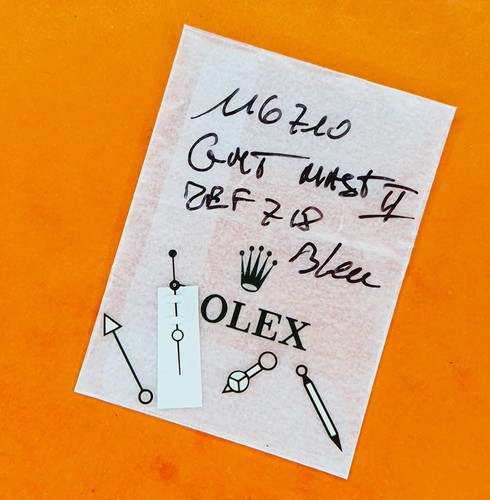 116710
GMT MAST II
REF 718
Bleu
OLEX